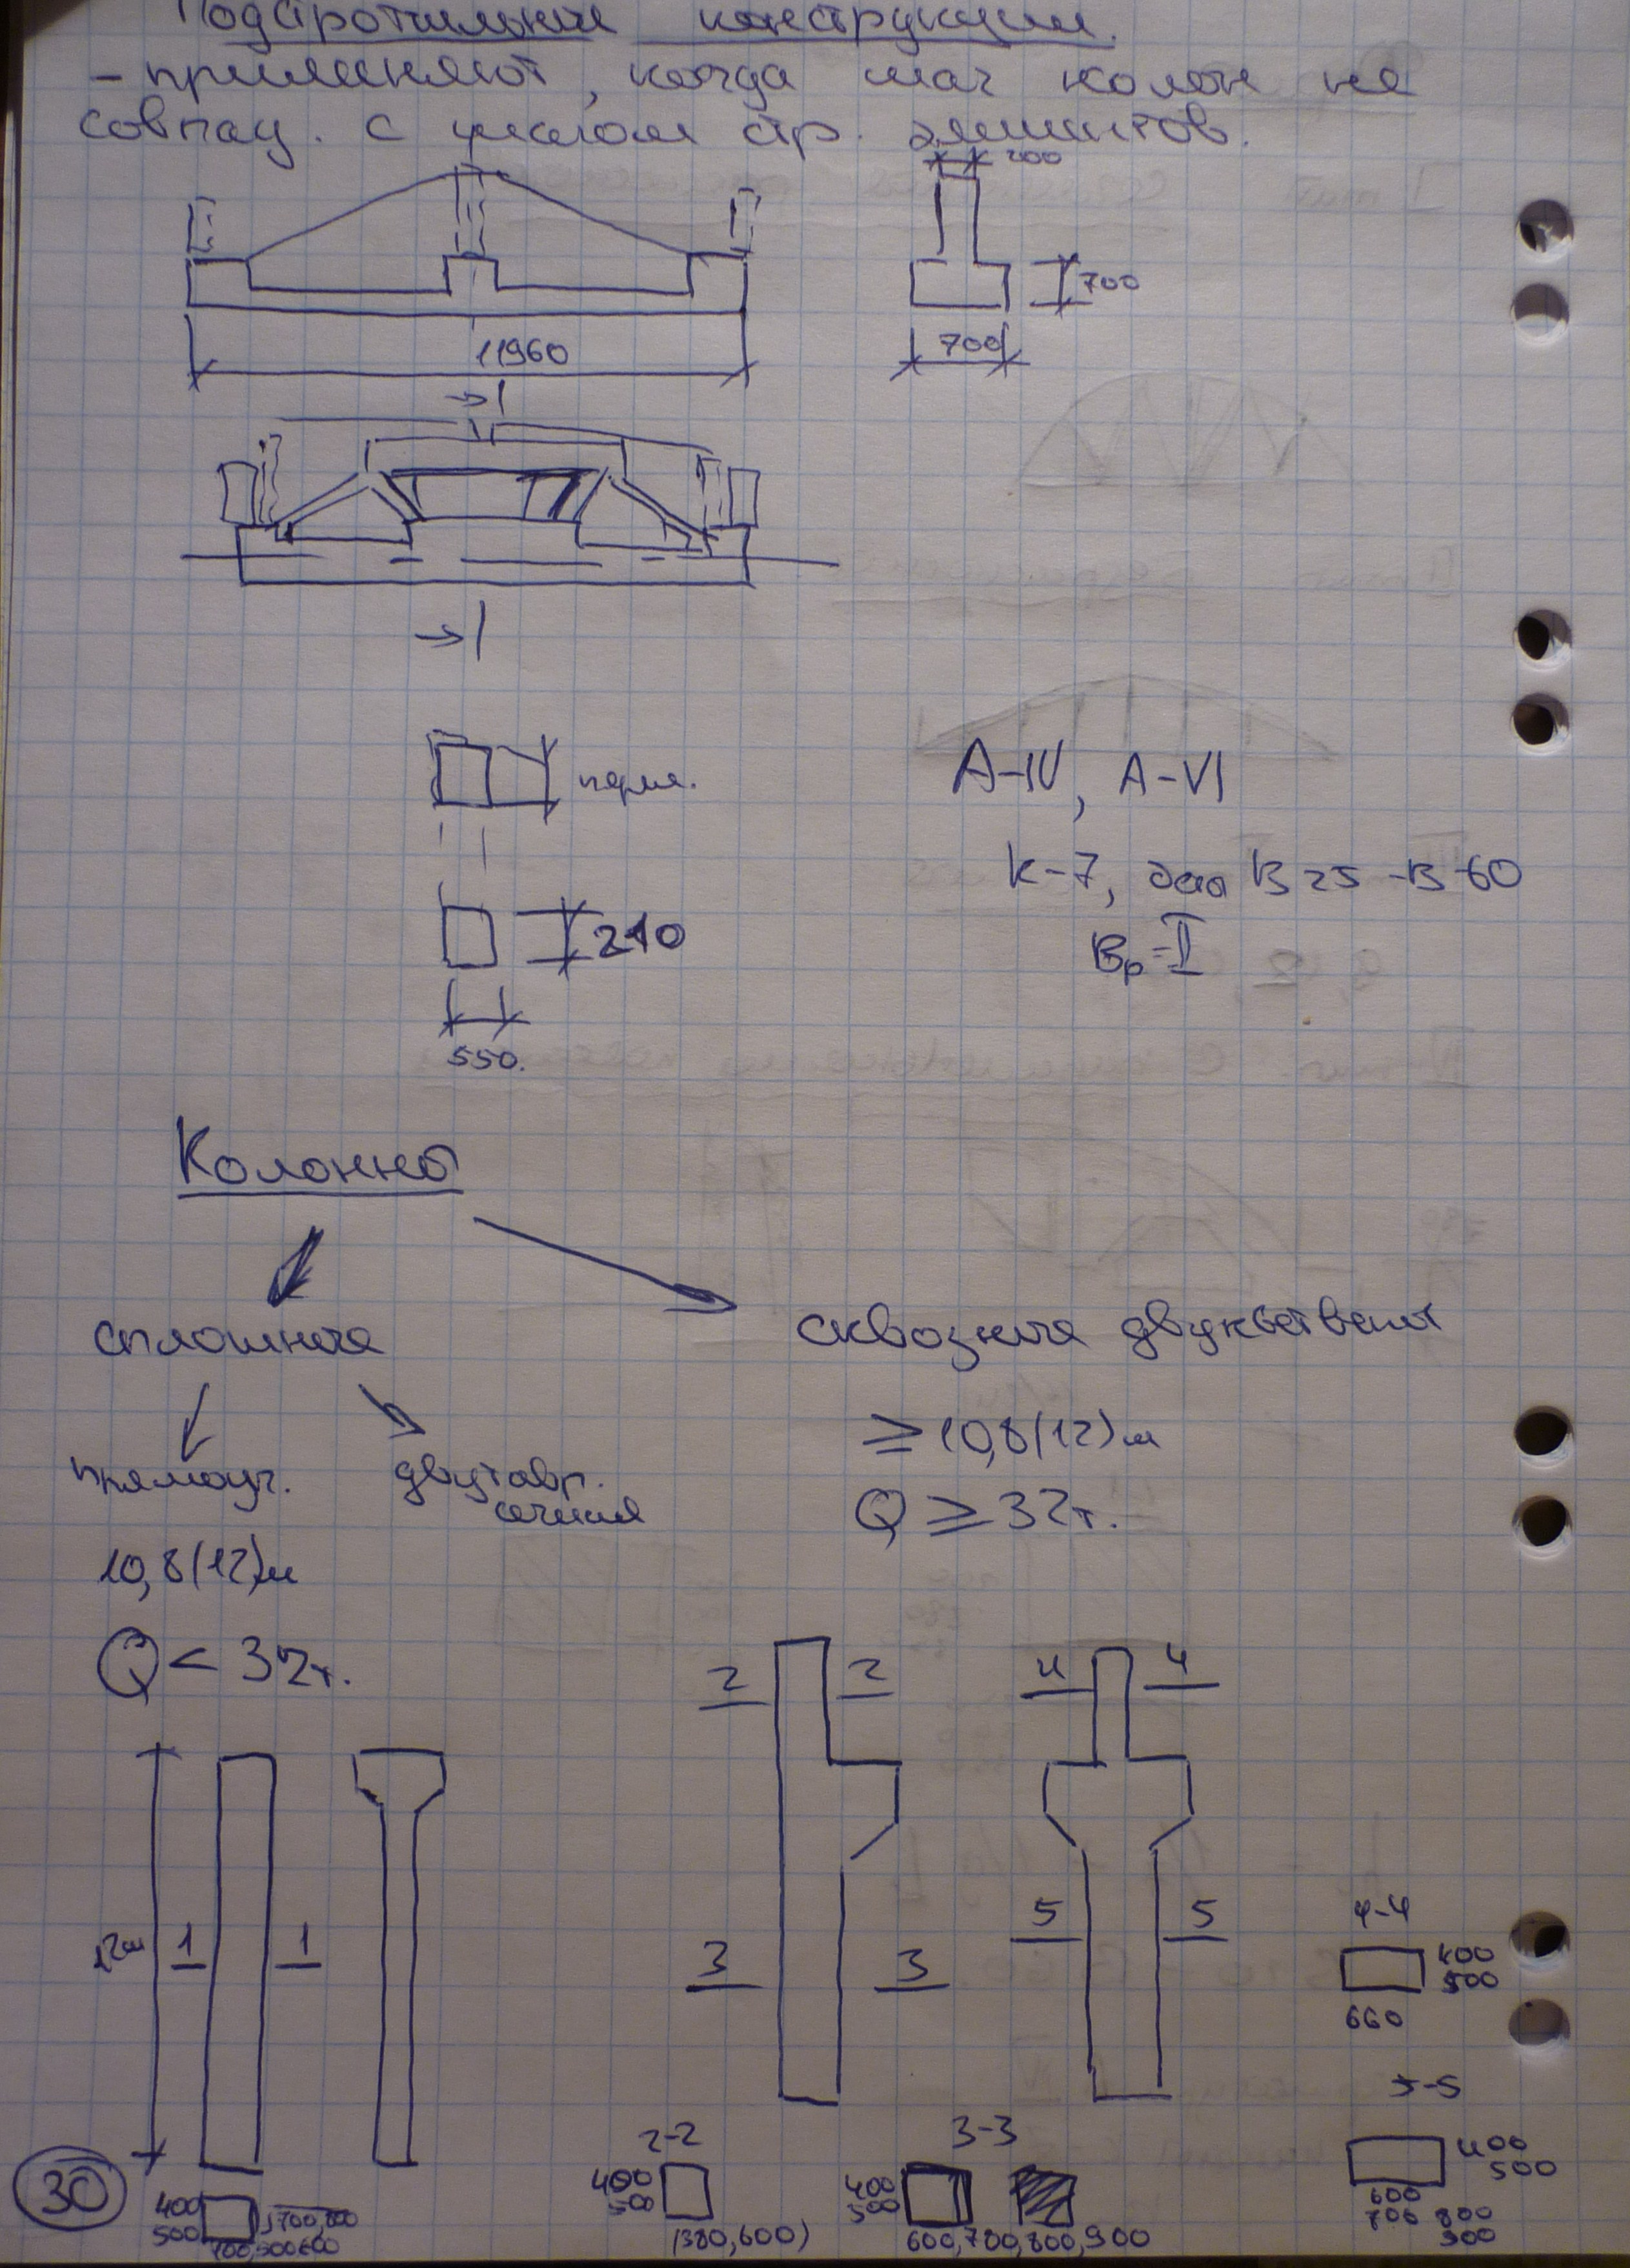 Подстропильные конструкции.
- применяют, когда шаг колон не
совпад. с шагом стр. элементов.
200
700
700
11960
перем.
210
550.
А-IV, А-VI
К-7, B25 - B60
Вр-I
Колонны
сплошные
сквозные двухветвен
прямоуг.
двутавр.
сечения
≥ 10,8(12)м
Q ≥ 32т.
10,8(12)м
Q < 32т.
2 2
4 4
12м
1 1
3 3
5 5
4-4
400
500
660
5-5
400
500
600
700 800
900
2-2
400
500
(380,600)
3-3
400
500
600,700,800,900
30
400
500